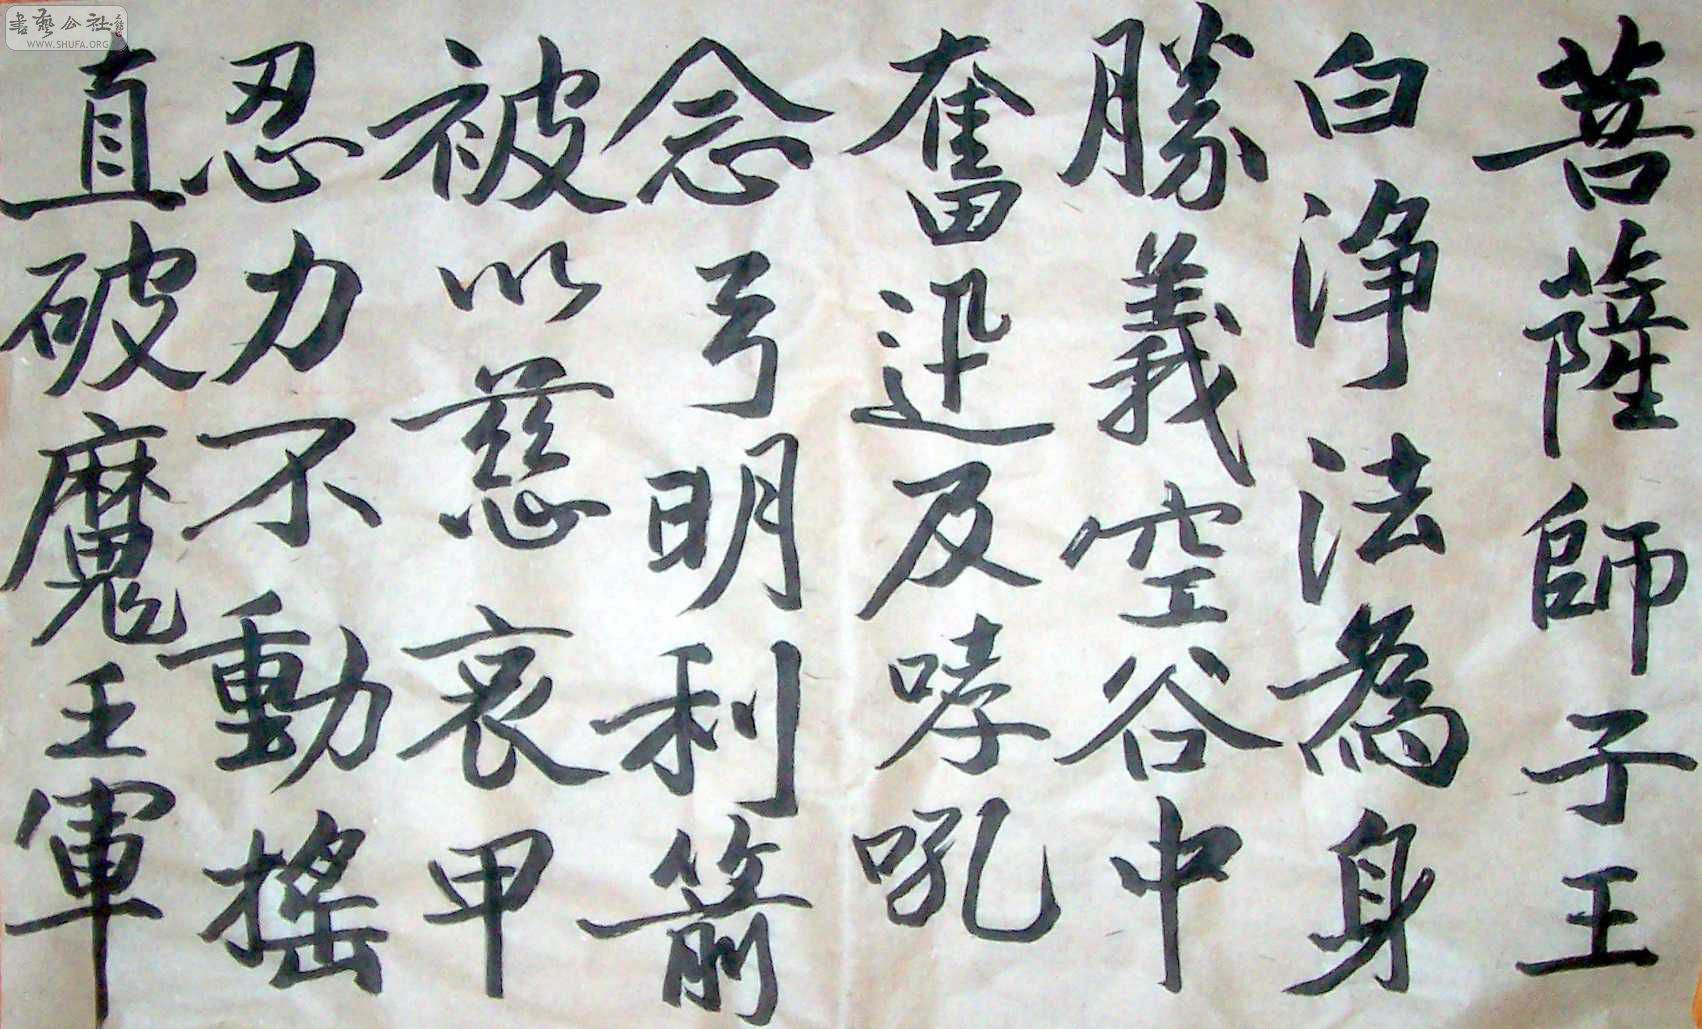 菩薩師子王
白淨法為身
勝義空谷中
奮迅及哮吼
念弓明利箭
被以慈哀甲
忍力不動搖
直破魔王軍
書藝公社
WWW.SHUFA.ORG